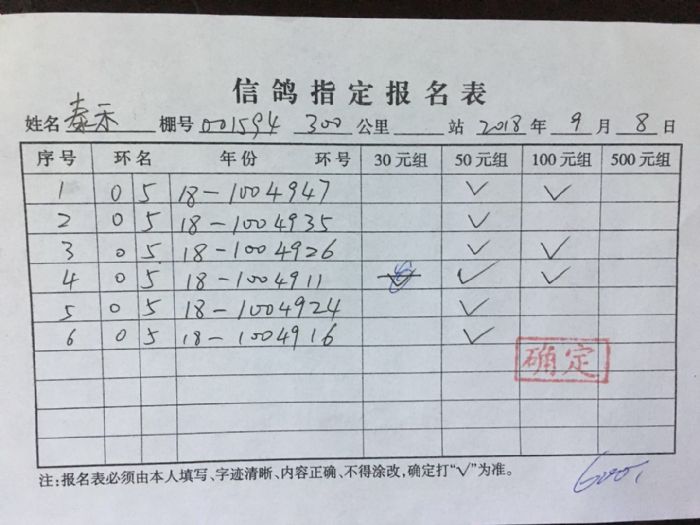 信鸽指定报名表
姓名 泰禾 棚号 001594 300 公里 站 2018 年 9 月 8 日
序号 环名 年份 环号 30元组 50元组 100元组 500元组
1 0 5 18-1004947 ✓ ✓
2 0 5 18-1004935 ✓
3 0 5 18-1004926 ✓ ✓
4 0 5 18-1004911 ✓ ✓
5 0 5 18-1004924 ✓
6 0 5 18-1004916 ✓
确定
注:报名表必须由本人填写、字迹清晰、内容正确、不得涂改,确定打“√”为准。